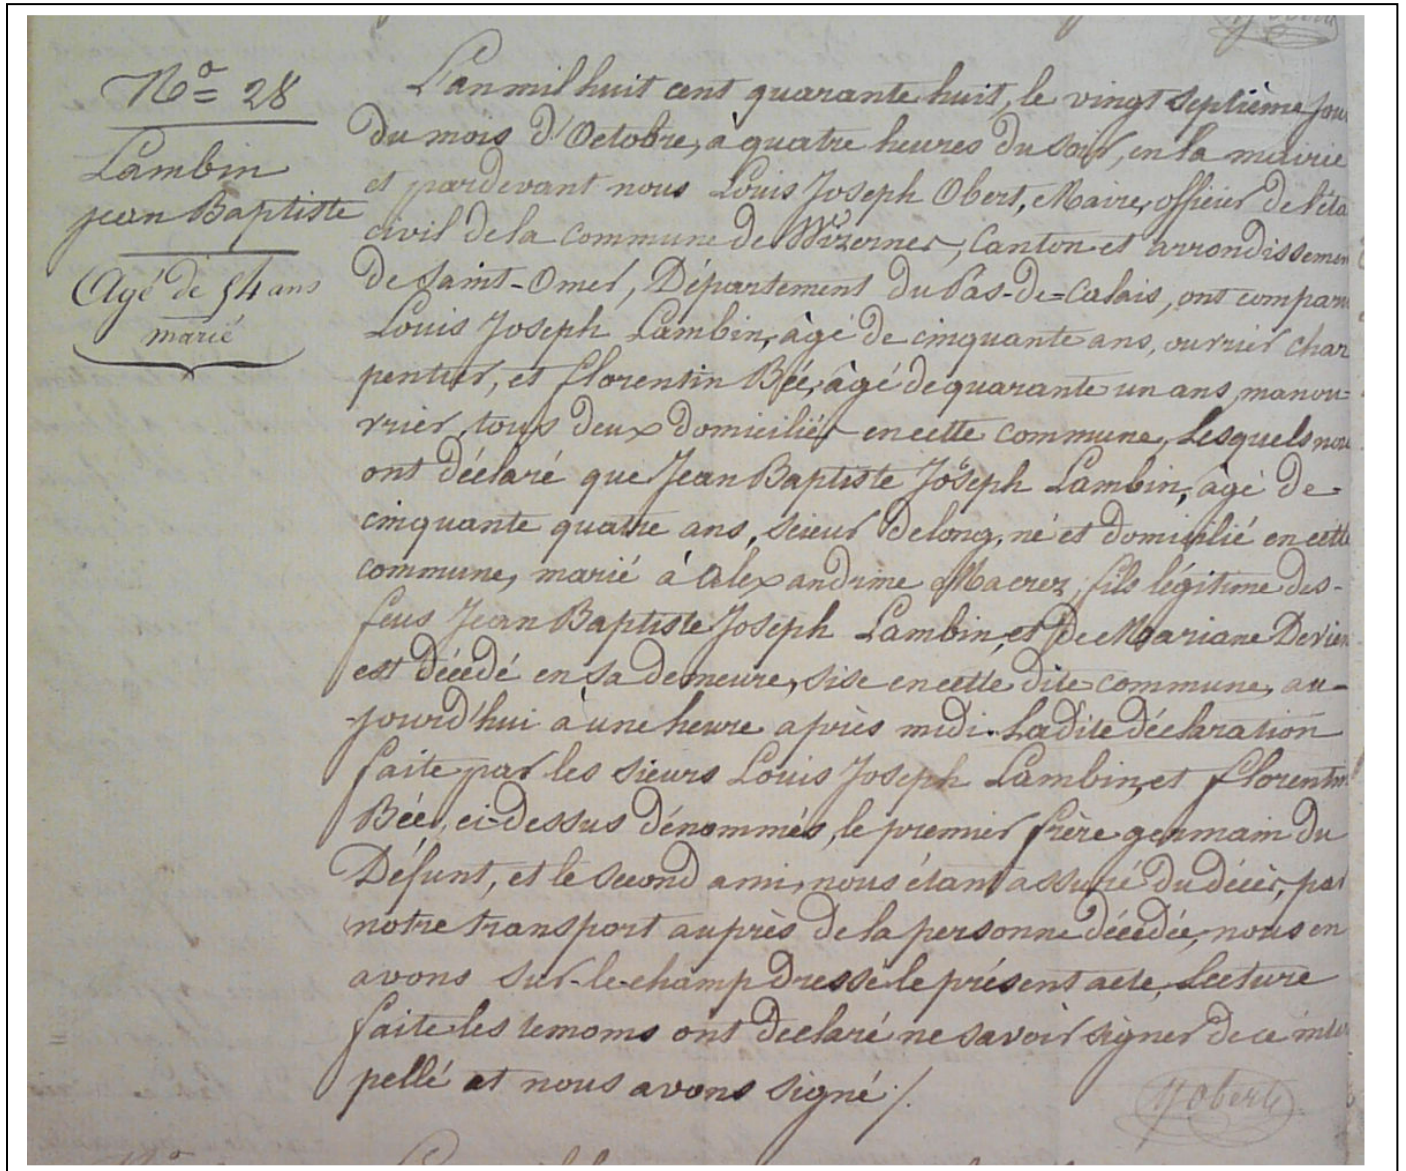 N° = 28
Lambin
jean Baptiste
Agé de 54 ans
marié
L'an mil huit cent quarante huit, le vingt septième jou
du mois d'Octobre, à quatre heures du soir, en la mairie
et pardevant nous Louis Joseph Obert, Maire, officier de l'éta
civil de la commune de Wizernes, Canton et arrondissemen
de Saint-Omer, Département du Pas-de=Calais, ont comparu
Louis Joseph Lambin, âgé de cinquante ans, ouvrier char
pentier, et florentin Bée, âgé de quarante un ans, manou-
vrier, tous deux domiciliés en cette commune, Lesquels nous
ont déclaré que Jean Baptiste Joseph Lambin, âgé de
cinquante quatre ans, scieur de long, né et domicilié en cette
commune, marié à Alexandrine Macrez, fils légitime des-
feus Jean Baptiste Joseph Lambin, et de Mariane Devien
est décédé en sa demeure, sise en cette dite commune, au-
-jourd'hui à une heure après midi. La dite déclaration
faite par les sieurs Louis Joseph Lambin, et florentin
Bée, ci-dessus dénommés, le premier frère germain du
Défunt, et le second ami, nous étant assuré du décès, par
notre transport auprès de la personne décédée, nous en
avons sur-le-champ dressé le présent acte, Lecture
faite les temoins ont declaré ne savoir signer de ce inter
pellé et nous avons signé ./.
Obert